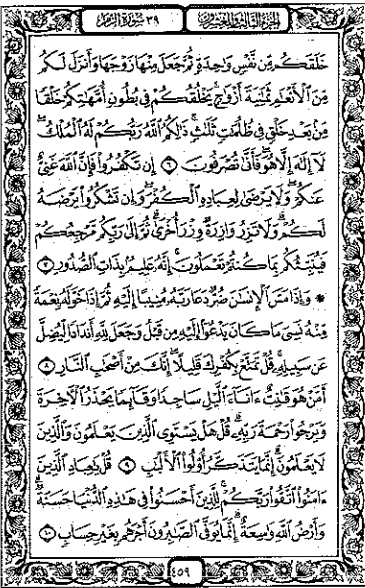 الجزء الثالث والعشرون ٣٩ سورة الزمر
خَلَقَكُم مِّن نَّفْسٍ وَٰحِدَةٍ ثُمَّ جَعَلَ مِنْهَا زَوْجَهَا وَأَنزَلَ لَكُم
مِّنَ ٱلْأَنْعَٰمِ ثَمَٰنِيَةَ أَزْوَٰجٍ ۚ يَخْلُقُكُمْ فِى بُطُونِ أُمَّهَٰتِكُمْ خَلْقًا
مِّنۢ بَعْدِ خَلْقٍ فِى ظُلُمَٰتٍ ثَلَٰثٍ ۚ ذَٰلِكُمُ ٱللَّهُ رَبُّكُمْ لَهُ ٱلْمُلْكُ ۖ
لَآ إِلَٰهَ إِلَّا هُوَ ۖ فَأَنَّىٰ تُصْرَفُونَ ٦ إِن تَكْفُرُوا۟ فَإِنَّ ٱللَّهَ غَنِىٌّ
عَنكُمْ ۖ وَلَا يَرْضَىٰ لِعِبَادِهِ ٱلْكُفْرَ ۖ وَإِن تَشْكُرُوا۟ يَرْضَهُ
لَكُمْ ۗ وَلَا تَزِرُ وَازِرَةٌ وِزْرَ أُخْرَىٰ ۗ ثُمَّ إِلَىٰ رَبِّكُم مَّرْجِعُكُمْ
فَيُنَبِّئُكُم بِمَا كُنتُمْ تَعْمَلُونَ ۚ إِنَّهُۥ عَلِيمٌۢ بِذَاتِ ٱلصُّدُورِ ٧
* وَإِذَا مَسَّ ٱلْإِنسَٰنَ ضُرٌّ دَعَا رَبَّهُۥ مُنِيبًا إِلَيْهِ ثُمَّ إِذَا خَوَّلَهُۥ نِعْمَةً
مِّنْهُ نَسِىَ مَا كَانَ يَدْعُوٓا۟ إِلَيْهِ مِن قَبْلُ وَجَعَلَ لِلَّهِ أَندَادًا لِّيُضِلَّ
عَن سَبِيلِهِۦ ۚ قُلْ تَمَتَّعْ بِكُفْرِكَ قَلِيلًا ۖ إِنَّكَ مِنْ أَصْحَٰبِ ٱلنَّارِ ٨
أَمَّنْ هُوَ قَٰنِتٌ ءَانَآءَ ٱلَّيْلِ سَاجِدًا وَقَآئِمًا يَحْذَرُ ٱلْءَاخِرَةَ
وَيَرْجُوا۟ رَحْمَةَ رَبِّهِۦ ۗ قُلْ هَلْ يَسْتَوِى ٱلَّذِينَ يَعْلَمُونَ وَٱلَّذِينَ
لَا يَعْلَمُونَ ۗ إِنَّمَا يَتَذَكَّرُ أُو۟لُوا۟ ٱلْأَلْبَٰبِ ٩ قُلْ يَٰعِبَادِ ٱلَّذِينَ
ءَامَنُوا۟ ٱتَّقُوا۟ رَبَّكُمْ ۚ لِلَّذِينَ أَحْسَنُوا۟ فِى هَٰذِهِ ٱلدُّنْيَا حَسَنَةٌ ۗ
وَأَرْضُ ٱللَّهِ وَٰسِعَةٌ ۗ إِنَّمَا يُوَفَّى ٱلصَّٰبِرُونَ أَجْرَهُم بِغَيْرِ حِسَابٍ ١٠
٤٥٩